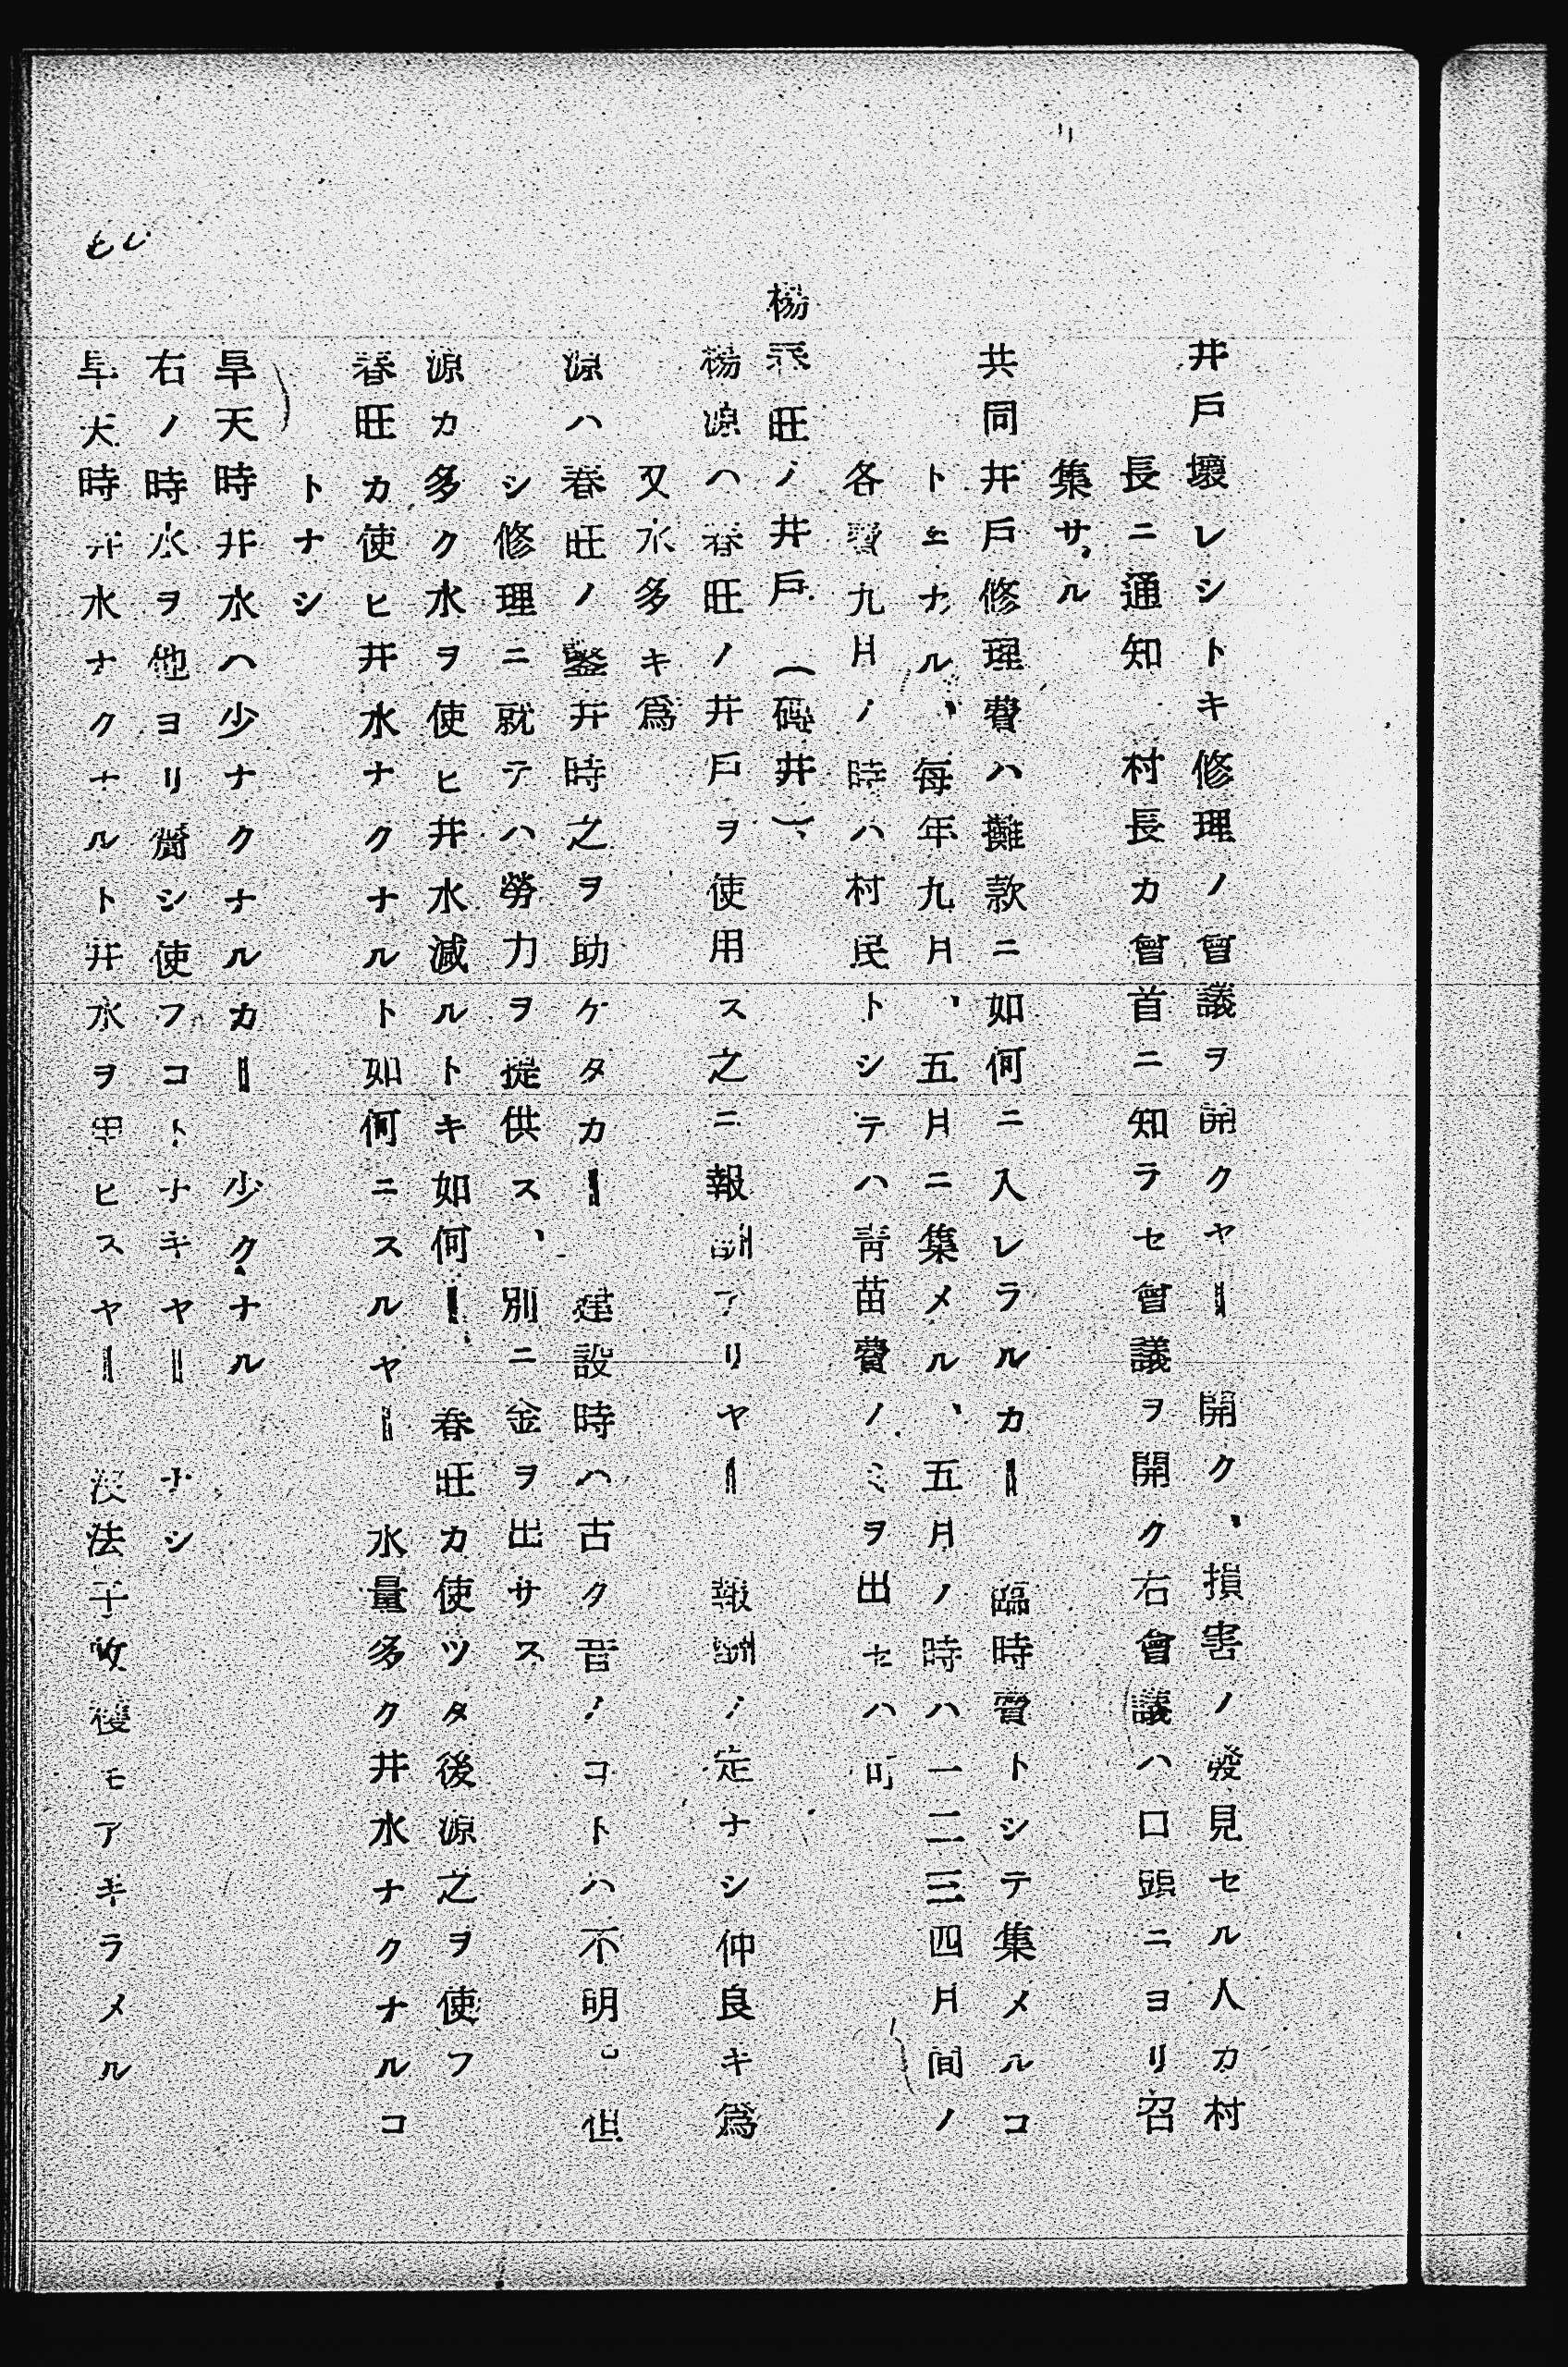 井戶壞レシトキ修理ノ會議ヲ開クヤ‖ 開ク、損害ノ發見セル人カ村
長ニ通知 村長カ會首ニ知ラセ會議ヲ開ク右會議ハ口頭ニヨリ召
集サル
共同井戶修理費ハ攤款ニ如何ニ入レラルルカ‖ 臨時費トシテ集メルコ
トニナル、每年九月、五月ニ集メル、五月ノ時ハ一二三四月間ノ
各費九月ノ時ハ村民トシテハ靑苗費ノミヲ出セハ可
楊春旺ノ井戶(磚井)
楊源ハ春旺ノ井戶ヲ使用ス之ニ報酬アリヤ‖ 報酬ノ定ナシ仲良キ爲
又水多キ爲
源ハ春旺ノ鑿井時之ヲ助ケタカ‖ 建設時ハ古ク昔ノコトハ不明 但
シ修理ニ就テハ勞力ヲ提供ス、別ニ金ヲ出サス
源カ多ク水ヲ使ヒ井水減ルトキ如何‖ 春旺カ使ツタ後源之ヲ使フ
春旺カ使ヒ井水ナクナルト如何ニスルヤ‖ 水量多ク井水ナクナルコ
トナシ
旱天時井水ハ少ナクナルカ‖ 少クナル
右ノ時水ヲ他ヨリ齎シ使フコトナキヤ‖ ナシ
旱天時井水ナクナルト井水ヲ用ヒスヤ‖ 沒法子收穫モアキラメル